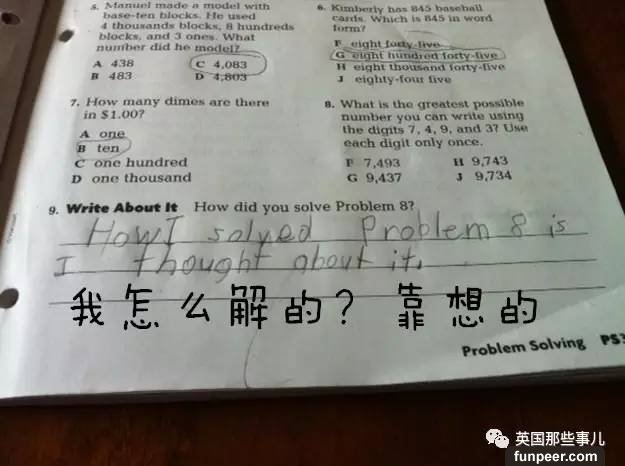 5. Manuel made a model with
base-ten blocks. He used
4 thousands blocks, 8 hundreds
blocks, and 3 ones. What
number did he model?
A 438
C 4,083
B 483
D 4,803
6. Kimberly has 845 baseball
cards. Which is 845 in word
form?
F eight forty-five
G eight hundred forty-five
H eight thousand forty-five
J eighty-four five
7. How many dimes are there
in $1.00?
A one
B ten
C one hundred
D one thousand
8. What is the greatest possible
number you can write using
the digits 7, 4, 9, and 3? Use
each digit only once.
F 7,493
H 9,743
G 9,437
J 9,734
9. Write About It How did you solve Problem 8?
How I solved Problem 8 is
I thought about it.
我怎么解的？靠想的
Problem Solving PS3
英国那些事儿
funpeer.com